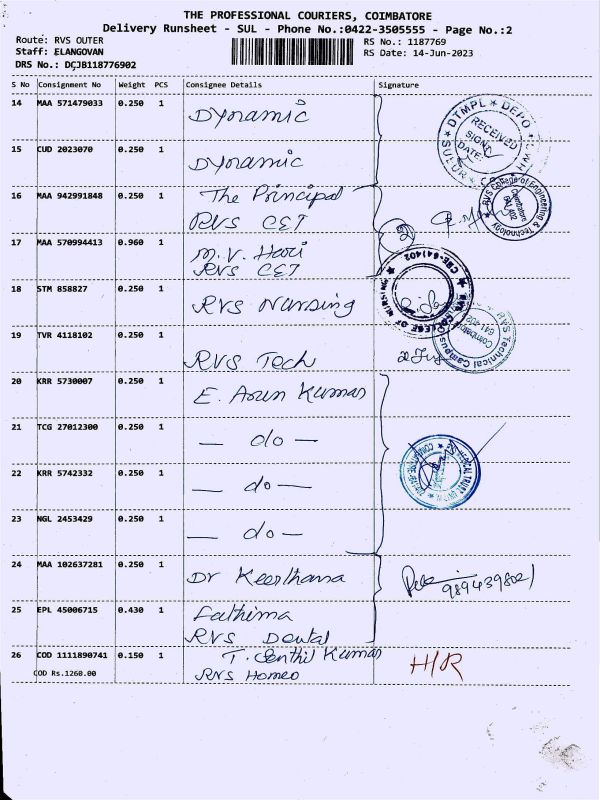 THE PROFESSIONAL COURIERS, COIMBATORE
Delivery Runsheet - SUL - Phone No.:0422-3505555 - Page No.:2
Route: RVS OUTER
RS No.: 1187769
Staff: ELANGOVAN
RS Date: 14-Jun-2023
DRS No.: DCJB118776902
S No Consignment No Weight PCS Consignee Details Signature
14 MAA 571479033 0.250 1 Dynamic
DTMPL ★ DEPO ★
RECEIVED
SIGN
DATE
SULUR
15 CUD 2023070 0.250 1 Dynamic
16 MAA 942991848 0.250 1 The Principal
RVS CET
RVS College of Engineering & Technology
Coimbatore
641 402
17 MAA 570994413 0.960 1 M.V. Hari
RVS CET
2
CBE-641402
COLLEGE OF NURSING
18 STM 858827 0.250 1 RVS Nursing
19 TVR 4118102 0.250 1 RVS Tech
RVS Technical Campus
Coimbatore
641 402
20 KRR 5730007 0.250 1 E. Arun Kumar
21 TCG 27012300 0.250 1 — do —
22 KRR 5742332 0.250 1 — do —
23 NGL 2453429 0.250 1 — do —
24 MAA 102637281 0.250 1 Dr Keerthana
9894398021
25 EPL 45006715 0.430 1 Fathima
RVS Dental
26 COD 1111890741 0.150 1 T. Senthil Kumar
COD Rs.1260.00 RVS Homeo
H/R